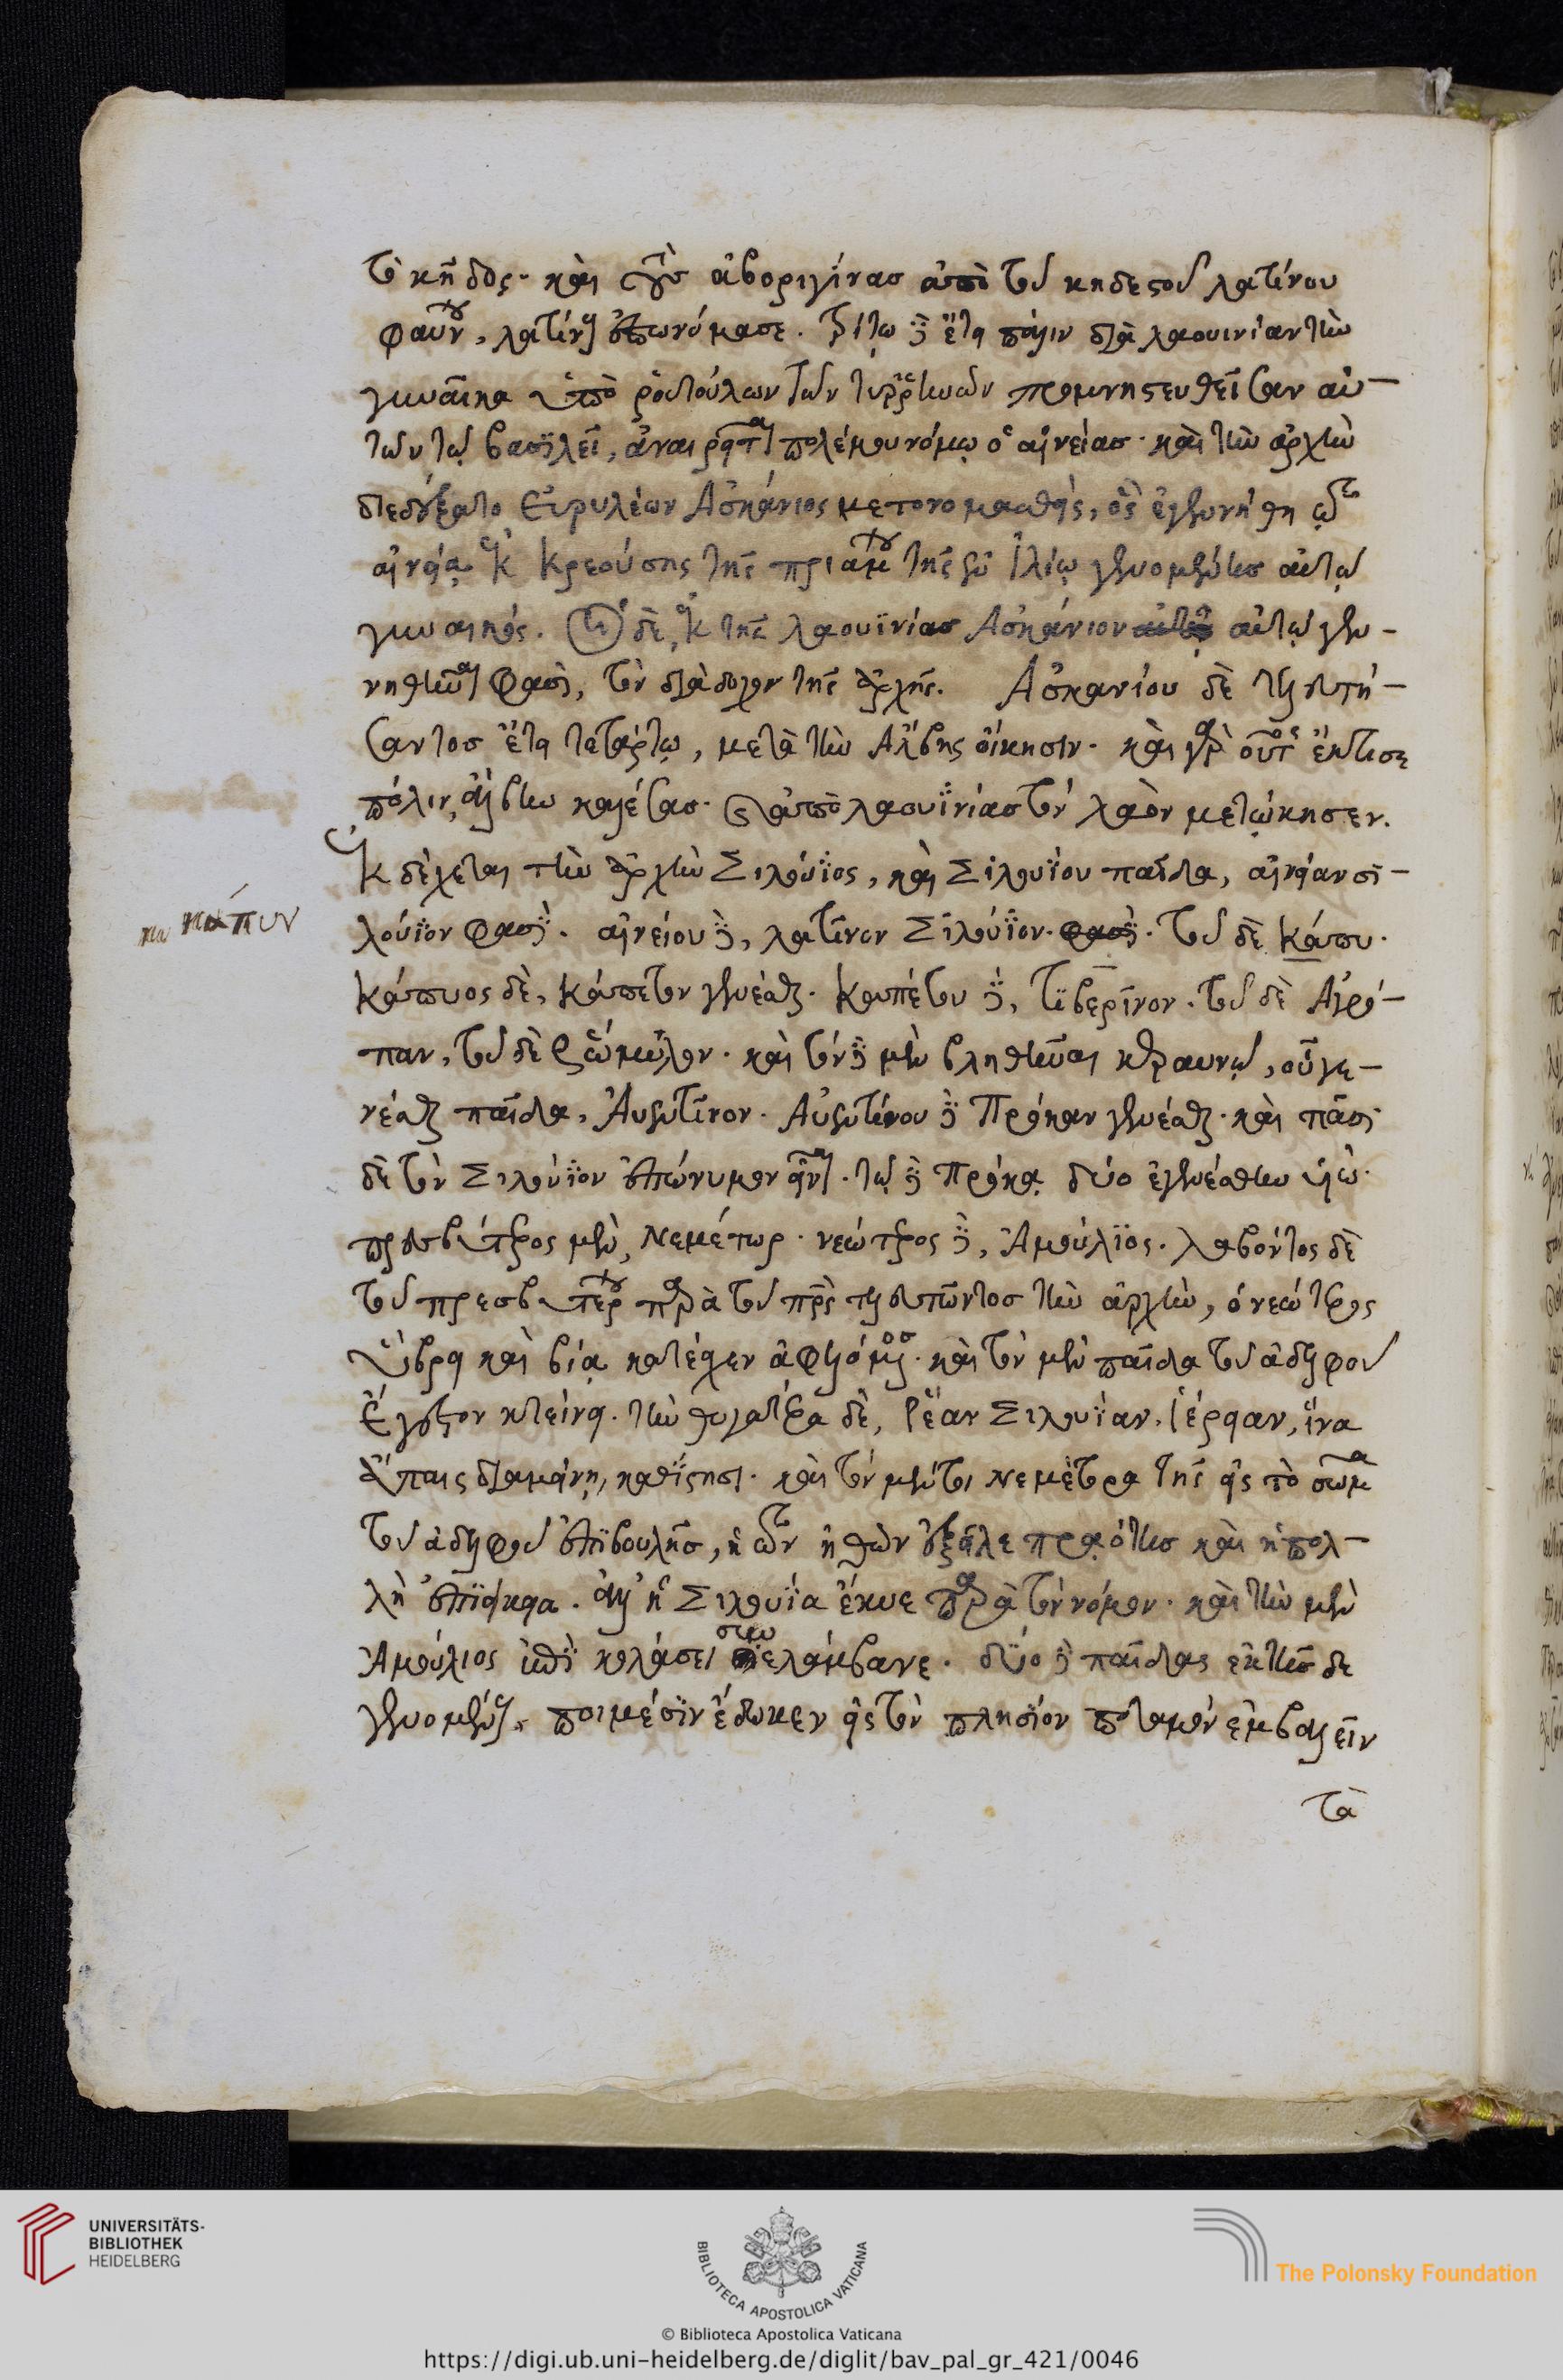 τὸ κῆδος· καὶ τοὺς ἀβοριγίνας ἀπὸ τοῦ κηδεστοῦ λατίνου
φαύνου, λατίνους ἐπωνόμασε. τρίτῳ δὲ ἔτει πάλιν διὰ λαουινίαν τὴν
γυναῖκα ὑπὸ ῥουτούλων τῶν τυρρηνῶν προμνηστευθεῖσαν αὐ-
τῶν τῷ βασιλεῖ, ἀναιρεῖται πολέμου νόμῳ ὁ αἰνείας· καὶ τὴν ἀρχὴν
διεδέξατο Εὐρυλέων Ἀσκάνιος μετονομασθείς, ὃς ἐγεννήθη τῷ
αἰνείᾳ ἐκ Κρεούσης τῆς πριάμου τῆς ἐν Ἰλίῳ γενομένης αὐτῷ
γυναικός. οἱ δὲ, ἐκ τῆς λαουϊνίας Ἀσκάνιον αὐτῷ γεν-
νηθῆναι φασὶ, τὸν διάδοχον τῆς ἀρχῆς. Ἀσκανίου δὲ τελευτή-
σαντος ἔτει τετάρτῳ, μετὰ τὴν Ἄλβης οἴκησιν· καὶ γὰρ οὗτος ἔκτισε
πόλιν, ἄλβην καλέσας· καὶ ἀπὸ λαουϊνίας τὸν λαὸν μετῴκησεν.
ἐκδέχεται τὴν ἀρχὴν Σιλούϊος, καὶ Σιλουΐου παῖδα, αἰνείαν σι-
λούϊον φασὶ· αἰνείου δὲ, λατῖνον Σιλούϊον· φασὶ· τοῦ δὲ Κάπυ·
κάπυν
Κάπυος δὲ, Κάπετον γενέσθαι· Καπέτου δὲ, Τιβερῖνον· τοῦ δὲ Ἀγρί-
παν, τοῦ δὲ Ῥωμύλον· καὶ τόνδε μὲν βληθῆναι κεραυνῷ, οὗ γε-
νέσθαι παῖδα, Ἀυεντῖνον· Αὐεντίνου δὲ Πρόκαν γενέσθαι· καὶ πᾶσι
δὲ τὸν Σιλούϊον ἐπώνυμον εἶναι· τῷ δὲ Πρόκᾳ δύο ἐγενέσθην υἱώ·
πρεσβύτερος μὲν, Νεμέτωρ· νεώτερος δὲ, Ἀμούλϊος. λαβόντος δὲ
τοῦ πρεσβυτέρου παρὰ τοῦ πρς τελευτῶντος τὴν ἀρχὴν, ὁ νεώτερος
ὕβρει καὶ βίᾳ κατέσχεν ἀφελόμενος· καὶ τὸν μὲν παῖδα τοῦ ἀδελφοῦ
Ἔγεστον κτείνει. τὴν θυγατέρα δὲ, Ῥέαν Σιλουΐαν, ἱέρειαν, ἵνα
ἄπαις διαμείνῃ, καθίστησι· καὶ τὸν μέν τοι Νεμέτορα τῆς εἰς τὸ σῶμα
τοῦ ἀδελφοῦ ἐπιβουλῆς, ἡ τῶν ἠθῶν ἐξείλε πραότης καὶ ἡ πολ-
λὴ ἐπιείκεια. ἀλλ᾽ ἡ Σιλουΐα ἔκυε παρὰ τὸν νόμον· καὶ τὴν μὲν
Ἀμούλιος ἐπὶ κολάσει συνελάμβανε. δύο δὲ παῖδας ἐκ τῆσδε
γενομένους, ποιμέσιν ἔδωκεν εἰς τὸν πλησίον ποταμὸν ἐμβαλεῖν
τὰ
UNIVERSITÄTS-
BIBLIOTHEK
HEIDELBERG
BIBLIOTECA APOSTOLICA VATICANA
The Polonsky Foundation
© Biblioteca Apostolica Vaticana
https://digi.ub.uni-heidelberg.de/diglit/bav_pal_gr_421/0046